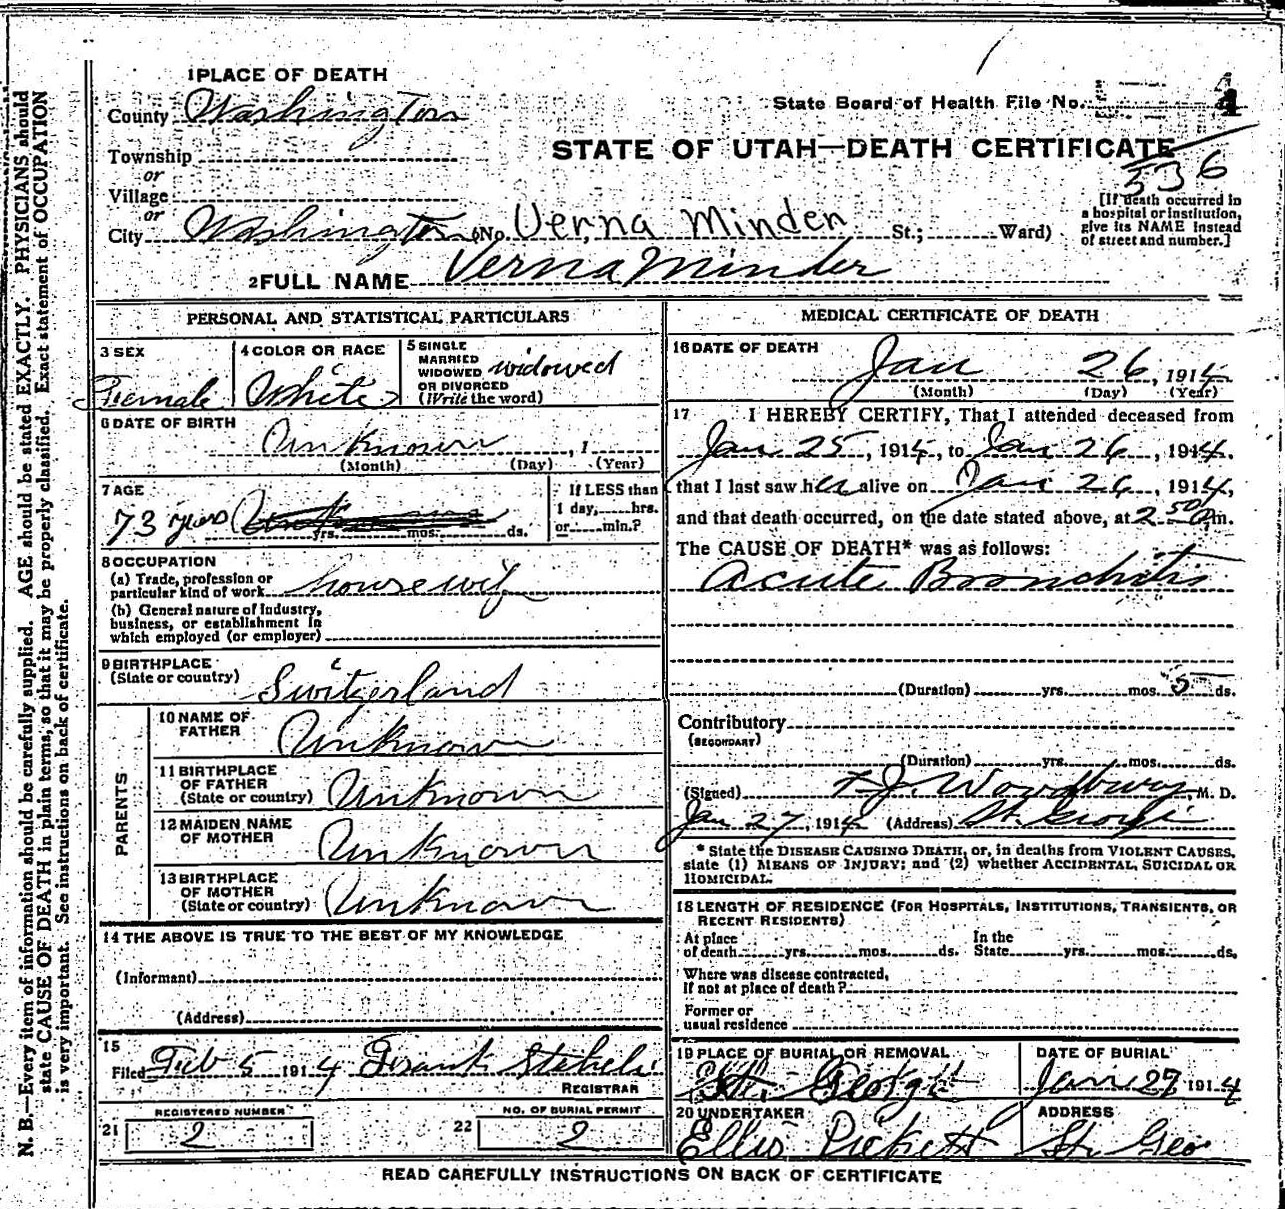 1 PLACE OF DEATH
County Washington
State Board of Health File No. 4
Township
STATE OF UTAH—DEATH CERTIFICATE
536
or
Village
or
City Washington (No. Verna Minden St.; Ward)
[If death occurred in a hospital or institution, give its NAME instead of street and number.]
2 FULL NAME Verna Minder
PERSONAL AND STATISTICAL PARTICULARS
3 SEX
Female
4 COLOR OR RACE
White
5 SINGLE
MARRIED
WIDOWED
OR DIVORCED
(Write the word)
widowed
6 DATE OF BIRTH
Unknown , 1
(Month) (Day) (Year)
7 AGE
73 years
yrs. mos. ds.
If LESS than
1 day, hrs.
or min.?
8 OCCUPATION
(a) Trade, profession or
particular kind of work housewif
(b) General nature of industry,
business, or establishment in
which employed (or employer)
9 BIRTHPLACE
(State or country) Switzerland
PARENTS
10 NAME OF
FATHER Unknown
11 BIRTHPLACE
OF FATHER
(State or country) Unknown
12 MAIDEN NAME
OF MOTHER Unknown
13 BIRTHPLACE
OF MOTHER
(State or country) Unknown
14 THE ABOVE IS TRUE TO THE BEST OF MY KNOWLEDGE
(Informant)
(Address)
15
Filed Feb 5 1914
REGISTRAR
REGISTERED NUMBER
21 2
NO. OF BURIAL PERMIT
22 2
MEDICAL CERTIFICATE OF DEATH
16 DATE OF DEATH
Jan 26, 1914
(Month) (Day) (Year)
17 I HEREBY CERTIFY, That I attended deceased from
Jan 25, 1914, to Jan 26, 1914.
that I last saw her alive on Jan 26, 1914,
and that death occurred, on the date stated above, at 2 50 Pm.
The CAUSE OF DEATH* was as follows:
Acute Bronchitis
(Duration) yrs. mos. 5 ds.
Contributory
(SECONDARY)
(Duration) yrs. mos. ds.
(Signed) F. J. Woodbury, M. D.
Jan 27, 1914 (Address) St. George
* State the DISEASE CAUSING DEATH, or, in deaths from VIOLENT CAUSES,
state (1) MEANS OF INJURY; and (2) whether ACCIDENTAL, SUICIDAL OR
HOMICIDAL.
18 LENGTH OF RESIDENCE (FOR HOSPITALS, INSTITUTIONS, TRANSIENTS, OR
RECENT RESIDENTS)
At place
of death yrs. mos. ds.
In the
State yrs. mos. ds.
Where was disease contracted,
If not at place of death?
Former or
usual residence
19 PLACE OF BURIAL OR REMOVAL
St. George
DATE OF BURIAL
Jan 27 1914
20 UNDERTAKER
Ellis Pickett
ADDRESS
St. Geo
READ CAREFULLY INSTRUCTIONS ON BACK OF CERTIFICATE
N. B.—Every item of information should be carefully supplied. AGE should be stated EXACTLY. PHYSICIANS should
state CAUSE OF DEATH in plain terms, so that it may be properly classified. Exact statement of OCCUPATION
is very important. See instructions on back of certificate.